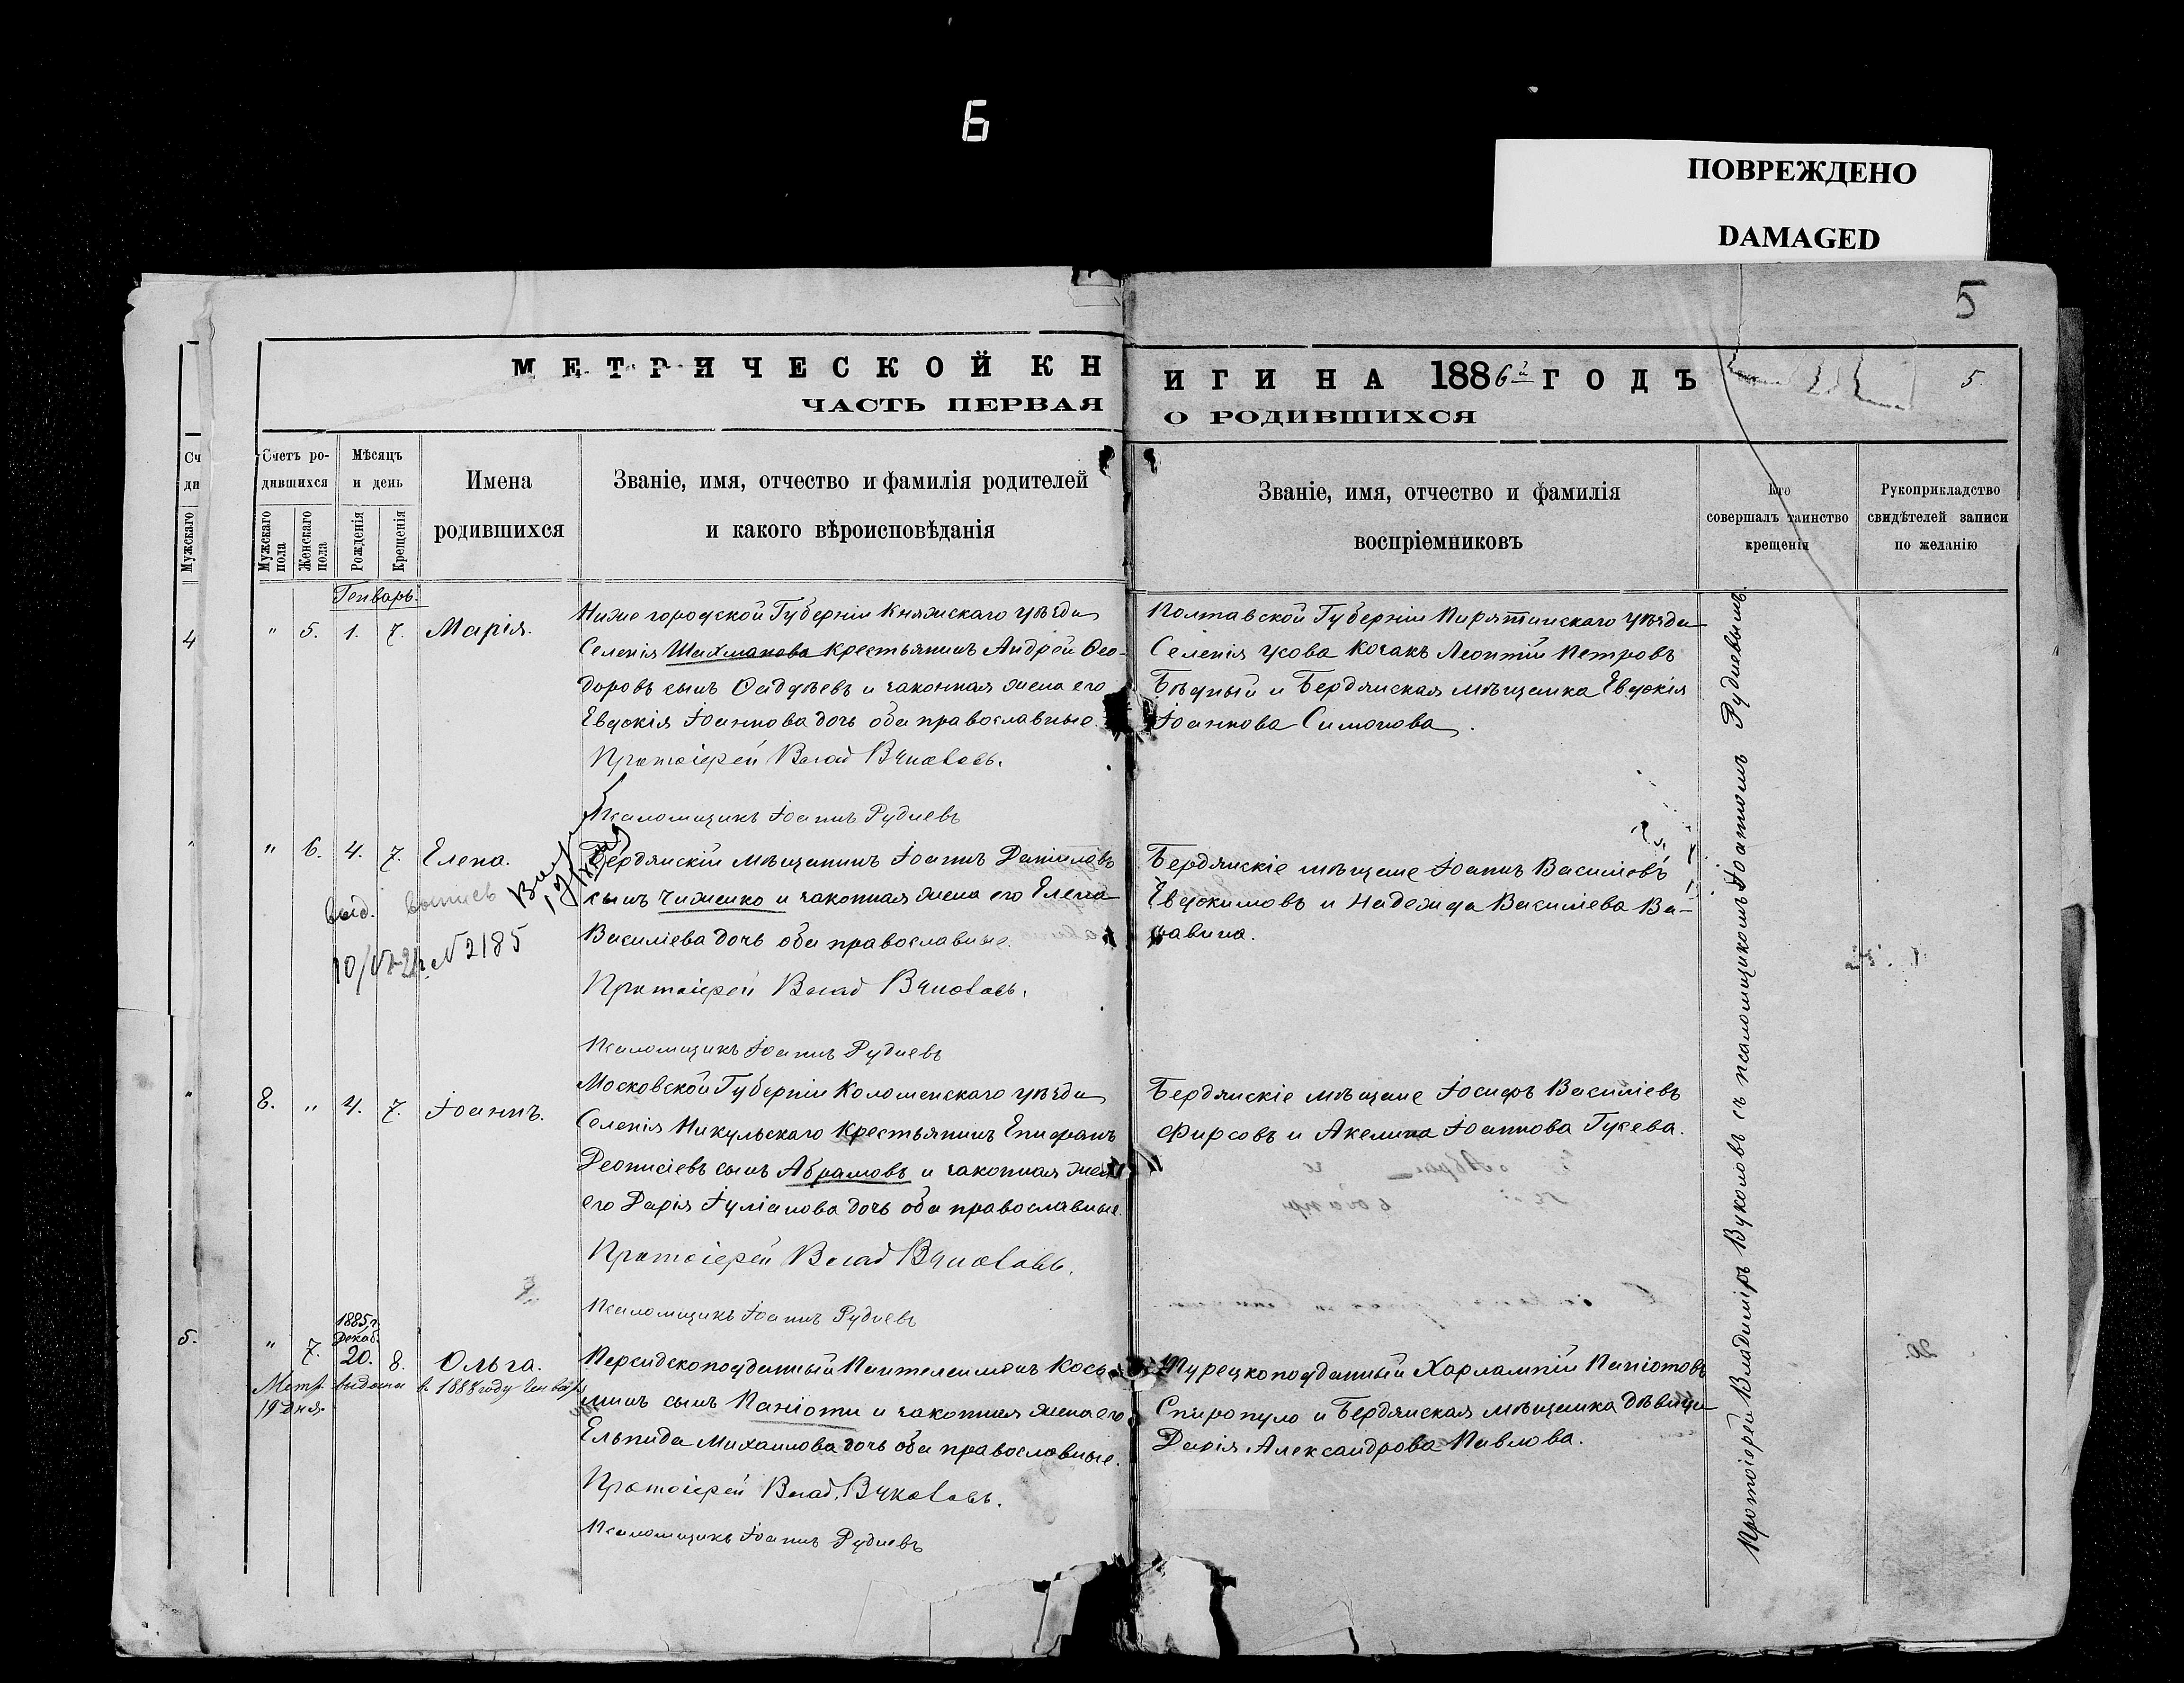 6
ПОВРЕЖДЕНО
DAMAGED
5
МЕТРИЧЕСКОЙ КНИГИ НА 1886й ГОДЪ
5.
ЧАСТЬ ПЕРВАЯ О РОДИВШИХСЯ
Сч
дн
Мужскаго
4
5.
Счетъ ро-
дившихся
Мужскаго
пола
Женскаго
пола
Мѣсяцъ
и день
Рожденія
Крещенія
Имена
родившихся
Званіе, имя, отчество и фамилія родителей
и какого вѣроисповѣданія
Званіе, имя, отчество и фамилія
воспріемниковъ
Кто
совершалъ таинство
крещенія
Рукоприкладство
свидѣтелей записи
по желанію
Генварь.
" 5. 1. 7. Марія.
Нижегородской Губерніи Княжскаго уѣзда
Селенія Шахманова крестьянинъ Андрей Ѳео-
доровъ сынъ и законная жена его
Евдокія Іоаннова дочь оба православные.
Протоіерей Влад Вуколовъ.
Псаломщикъ Іоаннъ Рудневъ
Полтавской Губерніи Пирятинскаго уѣзда
Селенія Усова козакъ Леонтій Петровъ
Бѣдный и Бердянская мѣщанка Евдокія
Іоаннова Симонова.
" 6. 4. 7. Елена.
выд. выпись
№ 2185
Бердянскій мѣщанинъ Іоаннъ Даниловъ
сынъ Чиженко и законная жена его Елена
Василіева дочь оба православные.
Протоіерей Влад Вуколовъ.
Псаломщикъ Іоаннъ Рудневъ
Бердянскіе мѣщане Іоаннъ Василіевъ
Евдокимовъ и Надежда Василіева Ва-
8. " 4. 7. Іоаннъ.
Московской Губерніи Коломенскаго уѣзда
Селенія Никульскаго крестьянинъ Епифанъ
Деонисіевъ сынъ Абрамовъ и законная жена
его Дарія Іуліанова дочь оба православные.
Протоіерей Влад Вуколовъ.
Псаломщикъ Іоаннъ Рудневъ
Бердянскіе мѣщане Іосифъ Василіевъ
Фирсовъ и Акелина Іоаннова Гусева.
1885 г.
Декаб.
" 7. 20. 8. Ольга.
Метр. выдана в 1888 году Генваря
19 дня.
Персидскоподданный Пантелеимонъ Кось-
минъ сынъ Паніоти и законная жена его
Ельпида Михаилова дочь оба православные.
Протоіерей Влад. Вуколовъ.
Псаломщикъ Іоаннъ Рудневъ
Турецкоподданный Харлампій Паніотовъ
Спиропуло и Бердянская мѣщанка дѣвица
Дарія Александрова Павлова.
Протоіерей Владиміръ Вуколовъ съ псаломщикомъ Іоанномъ Рудневымъ.